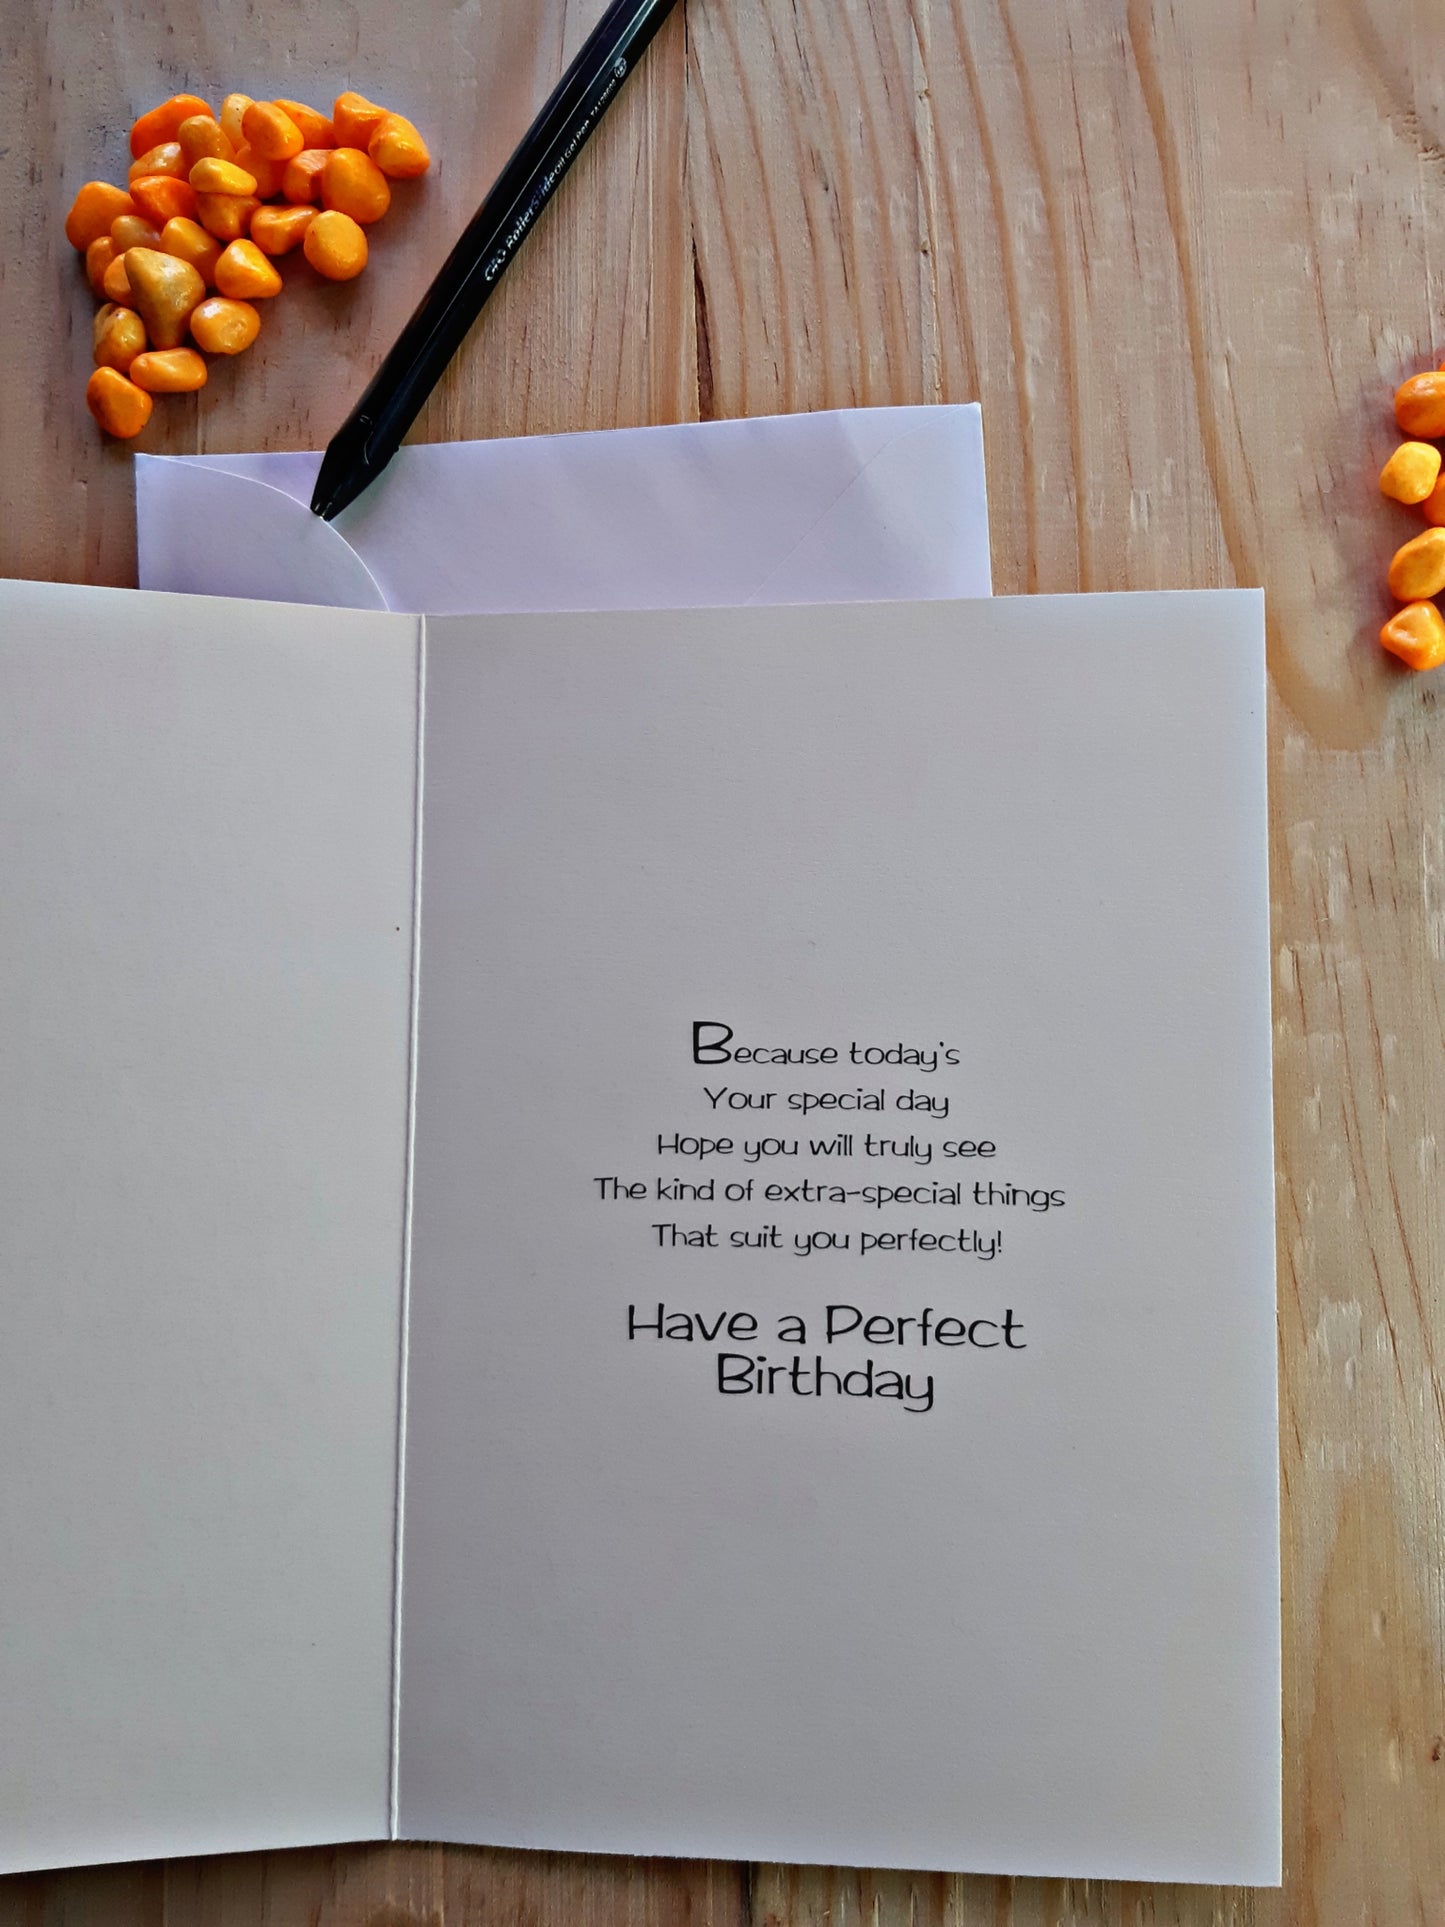 GIG RollerSlide Oil Gel Pen
Because today's
Your special day
Hope you will truly see
The kind of extra-special things
That suit you perfectly!
Have a Perfect
Birthday